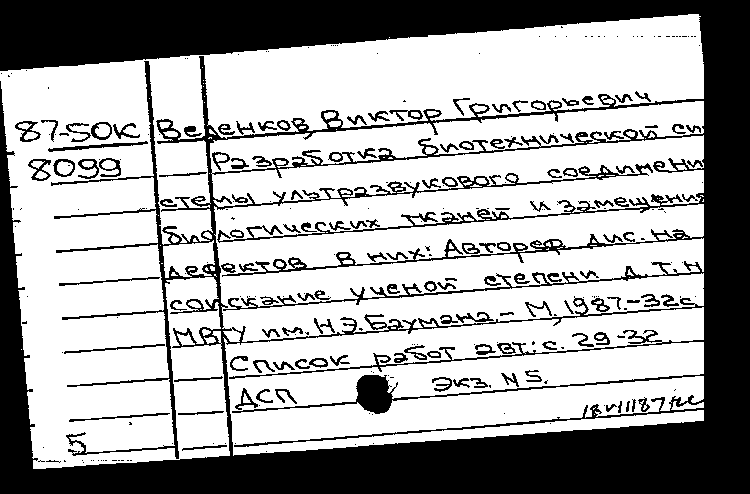 87-5ОК Веденков, Виктор Григорьевич
8099 Разработка биотехнической си-
стемы ультразвукового соединени
биологических тканей и замещения
дефектов в них: Автореф дис. на
соискание ученой степени д.т.н
МВТУ им. Н.Э.Баумана.- М, 1987.-32с
Список работ авт.: с. 29-32.
ДСП Экз. N 5.
5